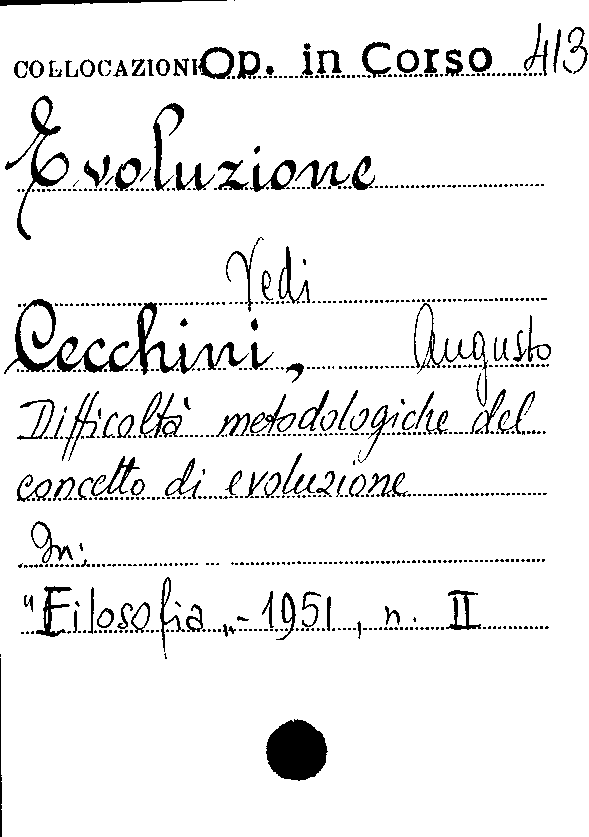 COLLOCAZIONE Op. in Corso 413
Evoluzione
Vedi
Cecchini, Augusto
Difficoltà metodologiche del
concetto di evoluzione
In:
"Filosofia„ - 1951, n. II